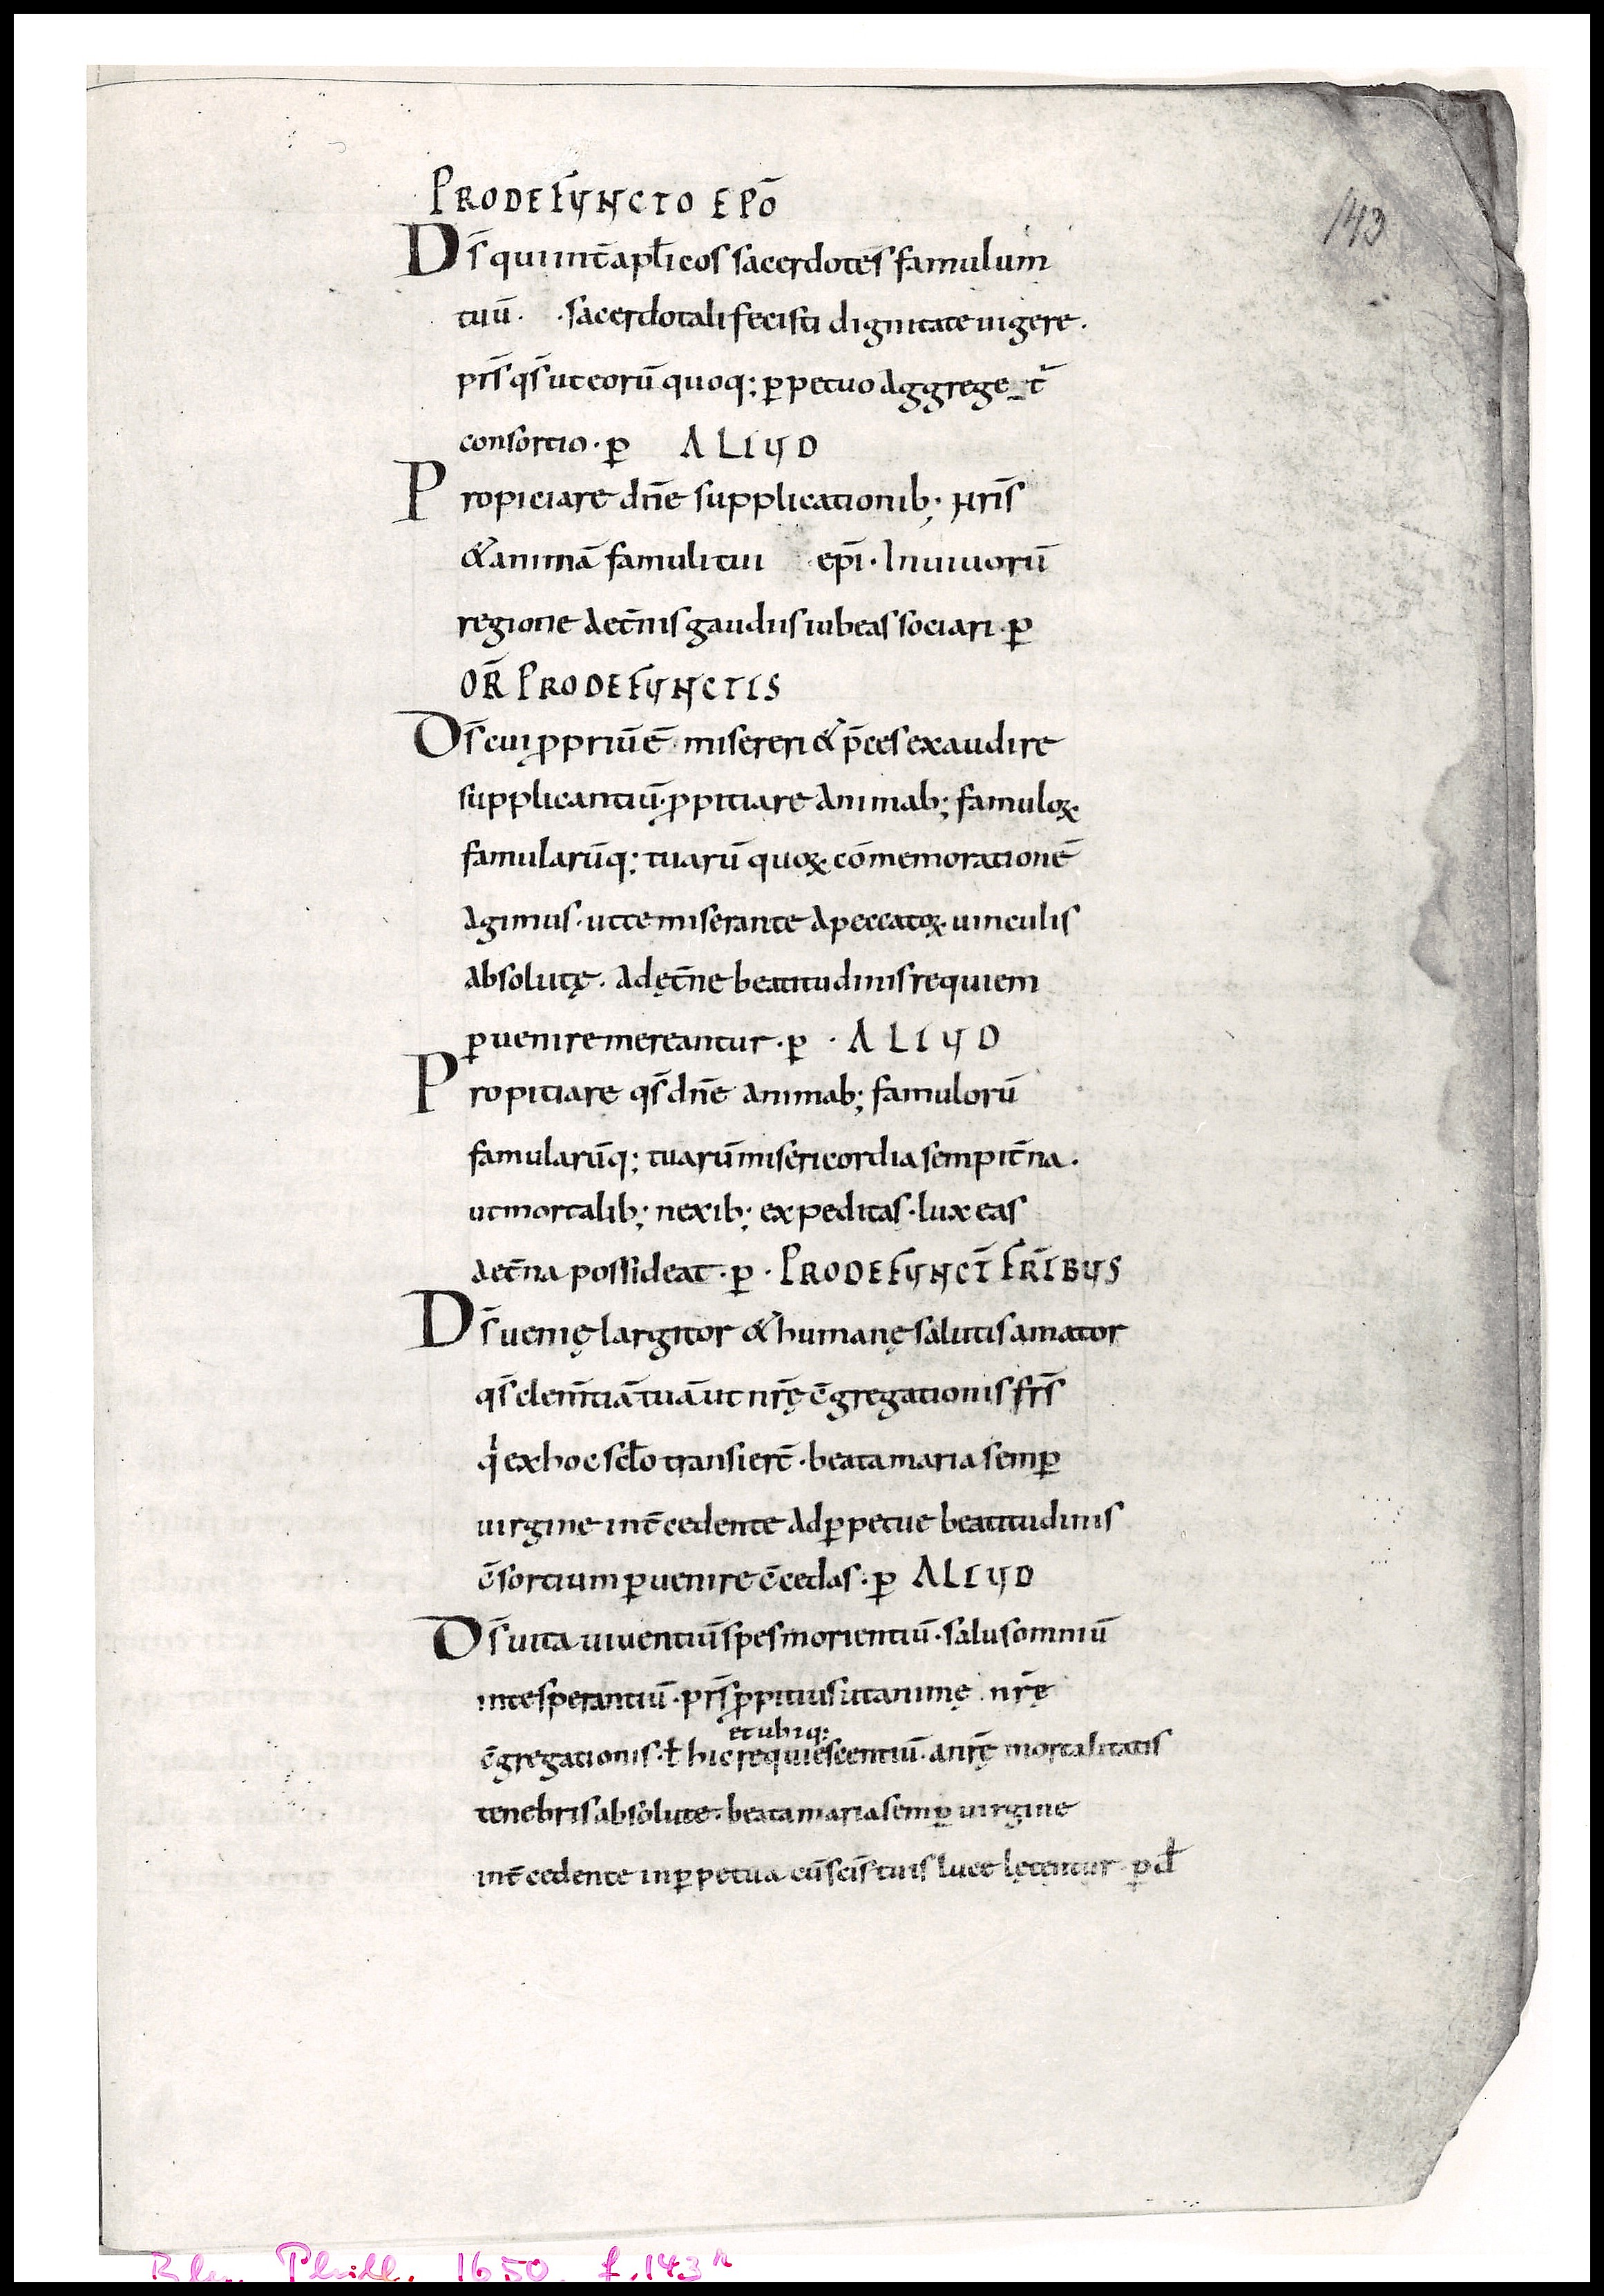 PRO DEFUNCTO EPŌ
143
Ds̄ qui int̄ apl̄icos sacerdotes famulum
tuū. ·sacerdotali fecisti dignitate uigere.
prs̄ qs̄ ut eorū quoq; ꝑpetuo aggrege_t᷑
consortio · ꝑ ALIUD
Propiciare dn̄e supplicationib; nr̄is
& animā famuli tui epī · In uiuorū
regione aet̄nis gaudiis iubeas sociari · ꝑ
OR̄ PRO DEFUNCTIS
Ds̄ cui ꝓpriū ē misereri & p̄ces exaudire
supplicantiū · ꝓpitiare animab; famuloꝝ
famularūq; tuarū quoꝝ cōmemorationē
agimus · ut te miserante a peccatoꝝ uinculis
absolutę · ad ęt̄ne beatitudinis requiem
ꝑuenire mereantur · ꝑ · ALIUD
Propitiare qs̄ dn̄e animab; famulorū
famularūq; tuarū misericordia sempit̄na ·
ut mortalib; nexib; expeditas · lux eas
aet̄na possideat · ꝑ · PRO DEFUNCT̄ FR̄IBUS
Ds̄ uenię largitor & humanę salutis amator
qs̄ clem̄tiā tuā ut nr̄ę c̄gregationis frs̄
qͥ ex hoc scl̄o transier̄t · beata maria semꝑ
uirgine int̄cedente ad ꝑpetue beatitudinis
c̄sortium ꝑuenire c̄cedas · ꝑ ALIUD
Ds̄ uita uiuentiū spes morientiū · salus omniū
in te sperantiū · prs̄ ꝓpitius ut animę nr̄ę
et ubiq;
c̄gregationis · ł hic requiescentiū · a nr̄ę mortalitatis
tenebris absolute · beata maria semꝑ uirgine
int̄cedente in ꝑpetua cū sc̄is tuis luce lętentur · ꝑ đ
Bln. Phill. 1650, f. 143r